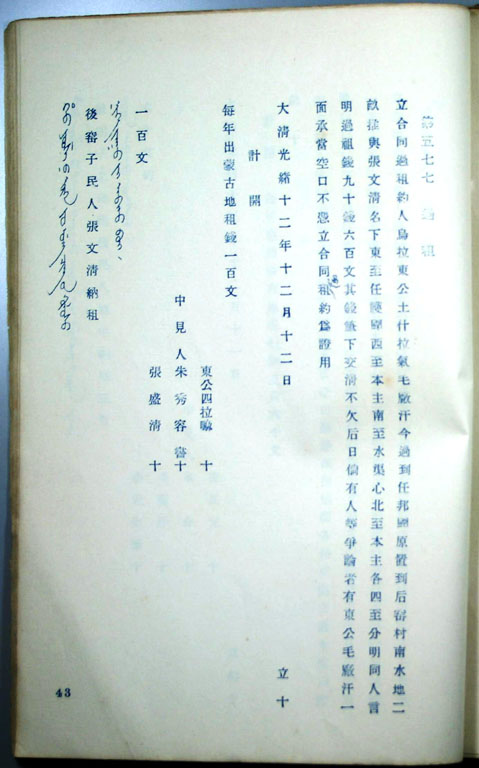 第五七七 過租
立合同過租約人烏拉東公土什拉氣毛廠汗今過到任邦國原置到后窑村南水地二
畝揉與張文清名下東至任寬國西至本主南至水渠心北至本主各四至分明同人言
明過租錢九十錢六百文其錢筆下交清不欠后日倘有人等爭論者有東公毛廠汗一
面承當空口不憑立合同租約爲證用
大清光緒十二年十二月十二日 立十
計開
每年出蒙古地租錢一百文
東公四拉嘛 十
中見人朱秀容 十
張盛清 十
一百文
後窑子民人張文清納租
43